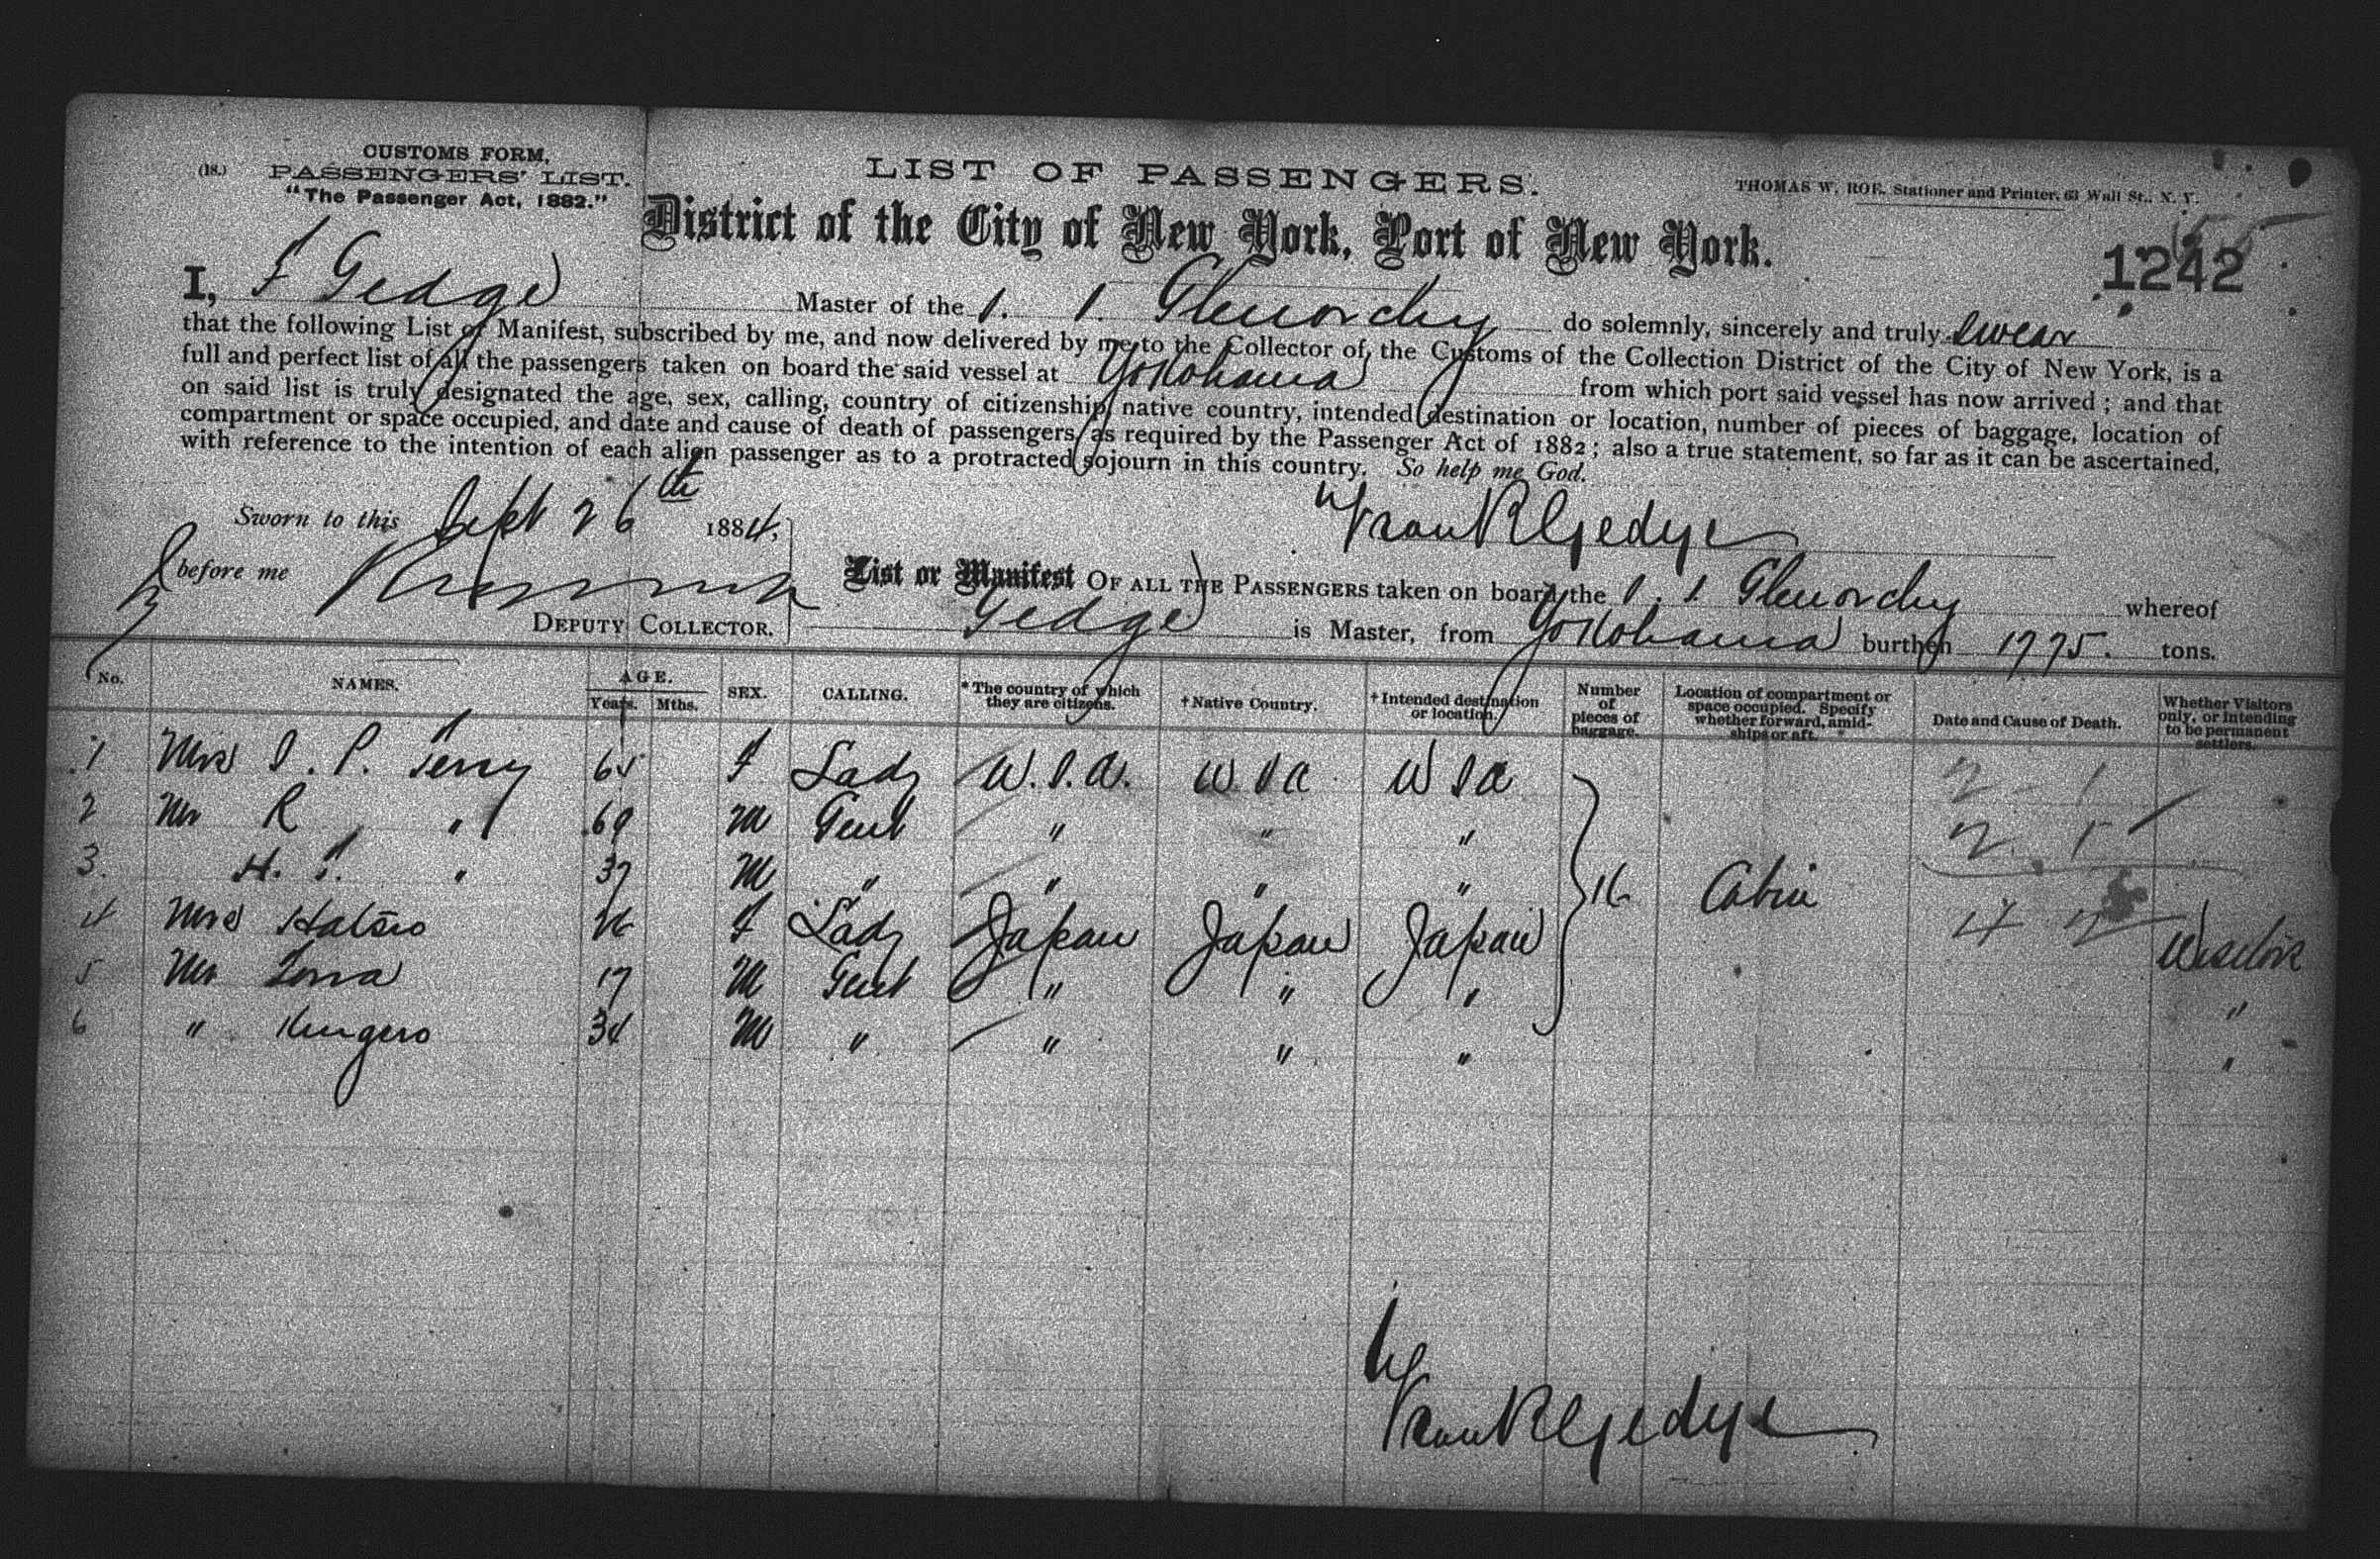 CUSTOMS FORM,
(18.) PASSENGERS' LIST.
"The Passenger Act, 1882."
LIST OF PASSENGERS.
THOMAS W. ROE, Stationer and Printer, 63 Wall St., N. Y.
District of the City of New York, Port of New York.
1242
I, F Gedge Master of the S. S. Glenorchy do solemnly, sincerely and truly swear
that the following List or Manifest, subscribed by me, and now delivered by me to the Collector of the Customs of the Collection District of the City of New York, is a
full and perfect list of all the passengers taken on board the said vessel at Yokohama from which port said vessel has now arrived; and that
on said list is truly designated the age, sex, calling, country of citizenship, native country, intended destination or location, number of pieces of baggage, location of
compartment or space occupied, and date and cause of death of passengers, as required by the Passenger Act of 1882; also a true statement, so far as it can be ascertained,
with reference to the intention of each alien passenger as to a protracted sojourn in this country. So help me God.
Sworn to this Sept 26th 1884,
Frank Gedye
before me
DEPUTY COLLECTOR.
List or Manifest OF ALL THE PASSENGERS taken on board the S. S. Glenorchy whereof
Gedge is Master, from Yokohama burthen 1775. tons.
No. NAMES. AGE. Years. Mths. SEX. CALLING. * The country of which they are citizens. † Native Country. † Intended destination or location. Number of pieces of baggage. Location of compartment or space occupied. Specify whether forward, amidships or aft. Date and Cause of Death. Whether Visitors only, or intending to be permanent settlers.
1 Mrs S. P. Terry 65 F Lady U.S.A. U S A U S A
2 Mr R " 69 M Gent " " "
3. H. T. " 37 M " " " " 16 Cabin
4 Mrs 26 F Lady Japan Japan Japan Visitors
5 Mr 17 M Gent " " " "
6 " Kungero 34 M " " " " "
Frank Gedye